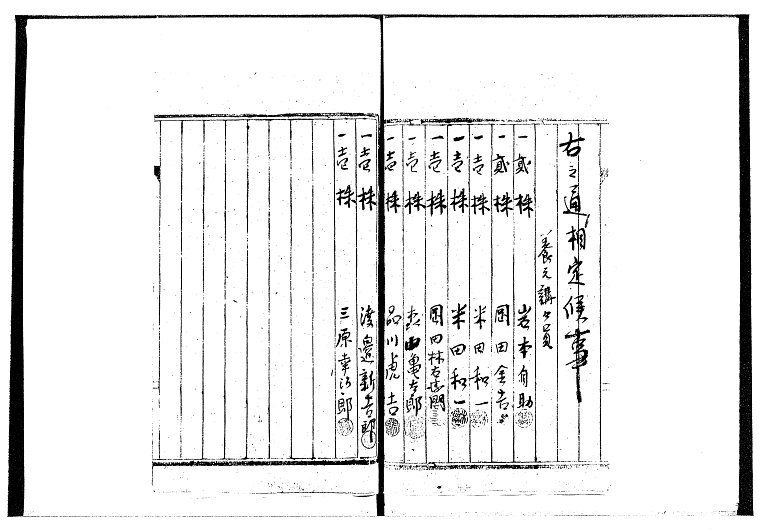 右之通相定候事
養元講々員
一弐株 岩本自助
一弐株 岡田金吉
一壱株 米田和一
一壱株 米田和一
一壱株 岡田林右衛門
一壱株 田亀太郎
一壱株 品川虎吉
一壱株 渡邉新吉郎
一壱株 三原幸治郎